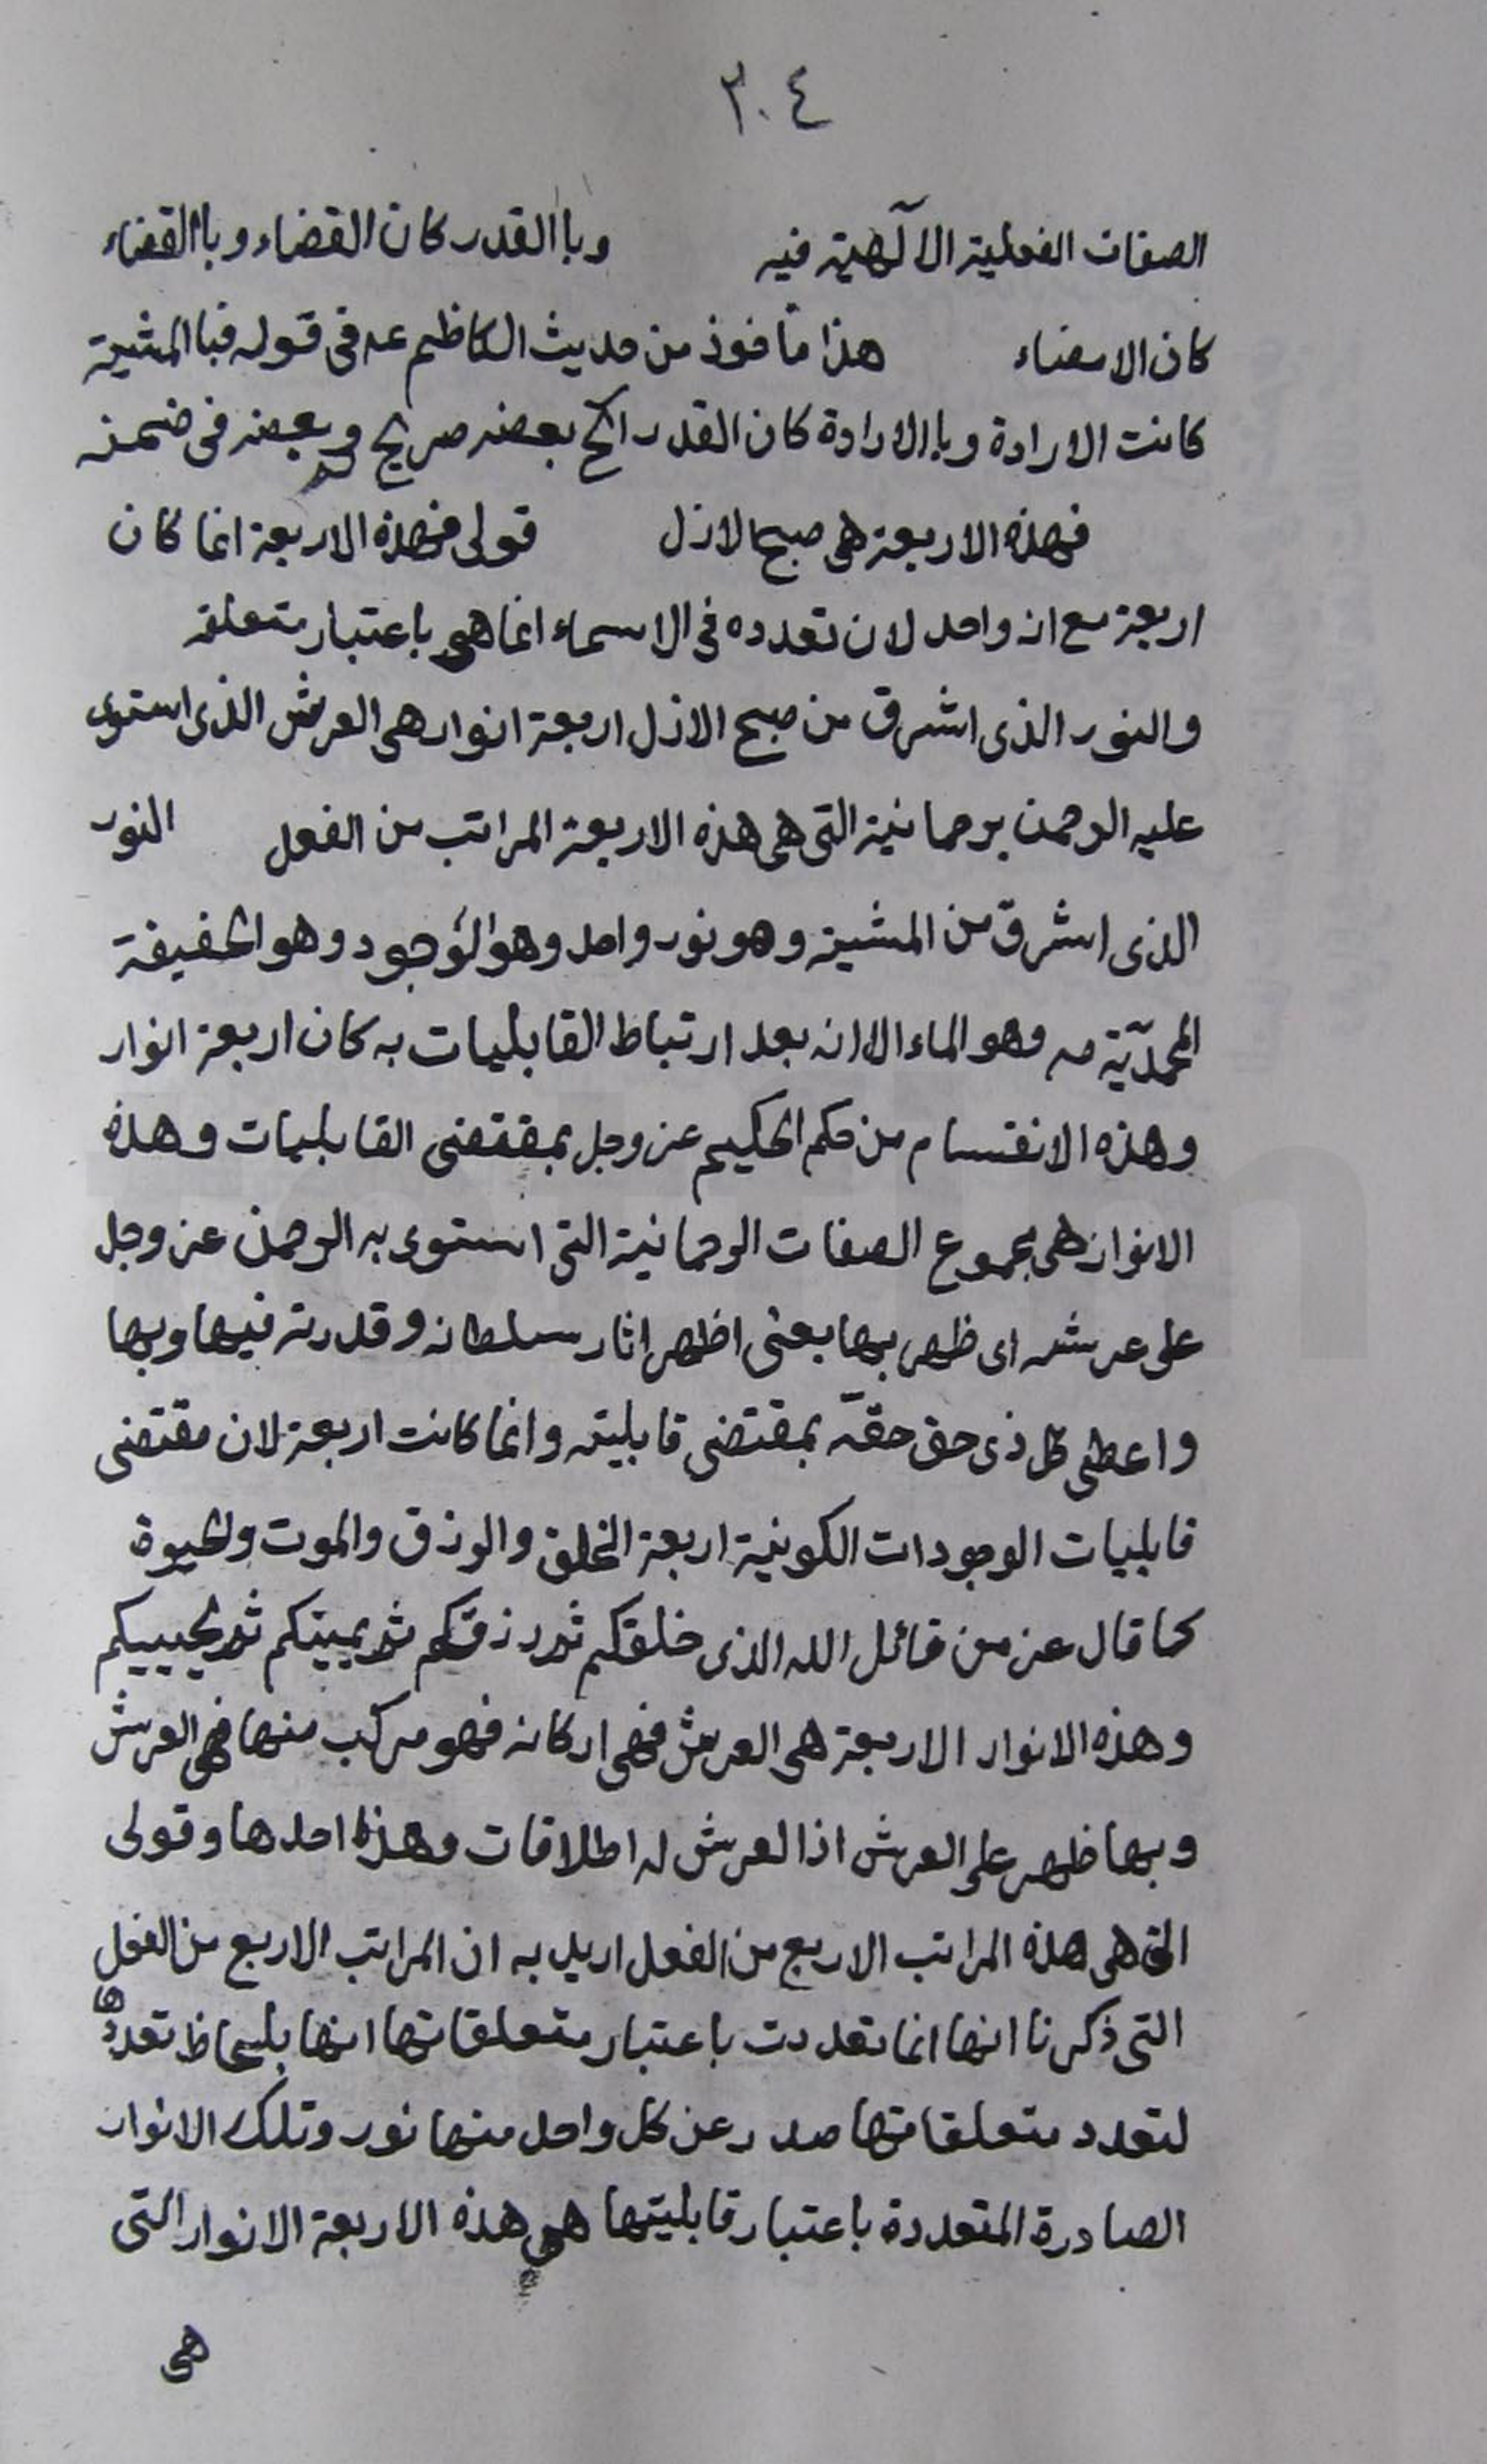 ٣٠٤
الصفات الفعلية الآلهية فيه وباالقدر كان القضاء وباالقضاء
كان الامضاء هذا مأخوذ من حديث الكاظم عه فى قوله فباالمشية
كانت الارادة وباالارادة كان القدر الخ بعضه صريح وبعضه فى ضمنه
فهذه الاربعة هى صبح الازل قولى فهذه الاربعة انما كان
اربعة مع انه واحد لان تعدده فى الاسماء انما هى باعتبار متعلقه
والنور الذى اشرق من صبح الازل اربعة انوار هى العرش الذى استوى
عليه الرحمن برحمانية التى هى هذه الاربعة المراتب من الفعل النور
الذى اشرق من المشية وهو نور واحد وهو الوجود وهو الحقيقة
المحمدّية صه وهو الماء الا انه بعد ارتباط القابليات به كان اربعة انوار
وهذه الانقسام من حكم الحكيم عز وجل بمقتضى القابليات وهذه
الانوار هى مجموع الصفات الرحمانية التى استوى به الرحمن عز وجل
على عرشه اى ظهر بها يعنى اظهر اثار سلطانه وقدرته فيها وبها
واعطى كل ذى حق حقّه بمقتضى قابليته وانما كانت اربعة لان مقتضى
قابليات الوجودات الكونية اربعة الخلق والرزق والموت والحيوة
كما قال عز من قائل الله الذى خلقكم ثم رزقكم ثم يميتكم ثم يحييكم
وهذه الانوار الاربعة هى العرش فهى اركانه فهو مركب منها فهى العرش
وبها ظهر على العرش اذا لعرش له اطلاقات وهذا احدها وقولى
التى هى هذه المراتب الاربع من الفعل اريد به ان المراتب الاربع من الفعل
التى ذكرنا انها انما تعددت باعتبار متعلقاتها انها بلحاظ تعددها
لتعدد متعلقاتها صدر عن كل واحد منها نور وتلك الانوار
الصادرة المتعددة باعتبار قابليتها هى هذه الاربعة الانوار التى
هى